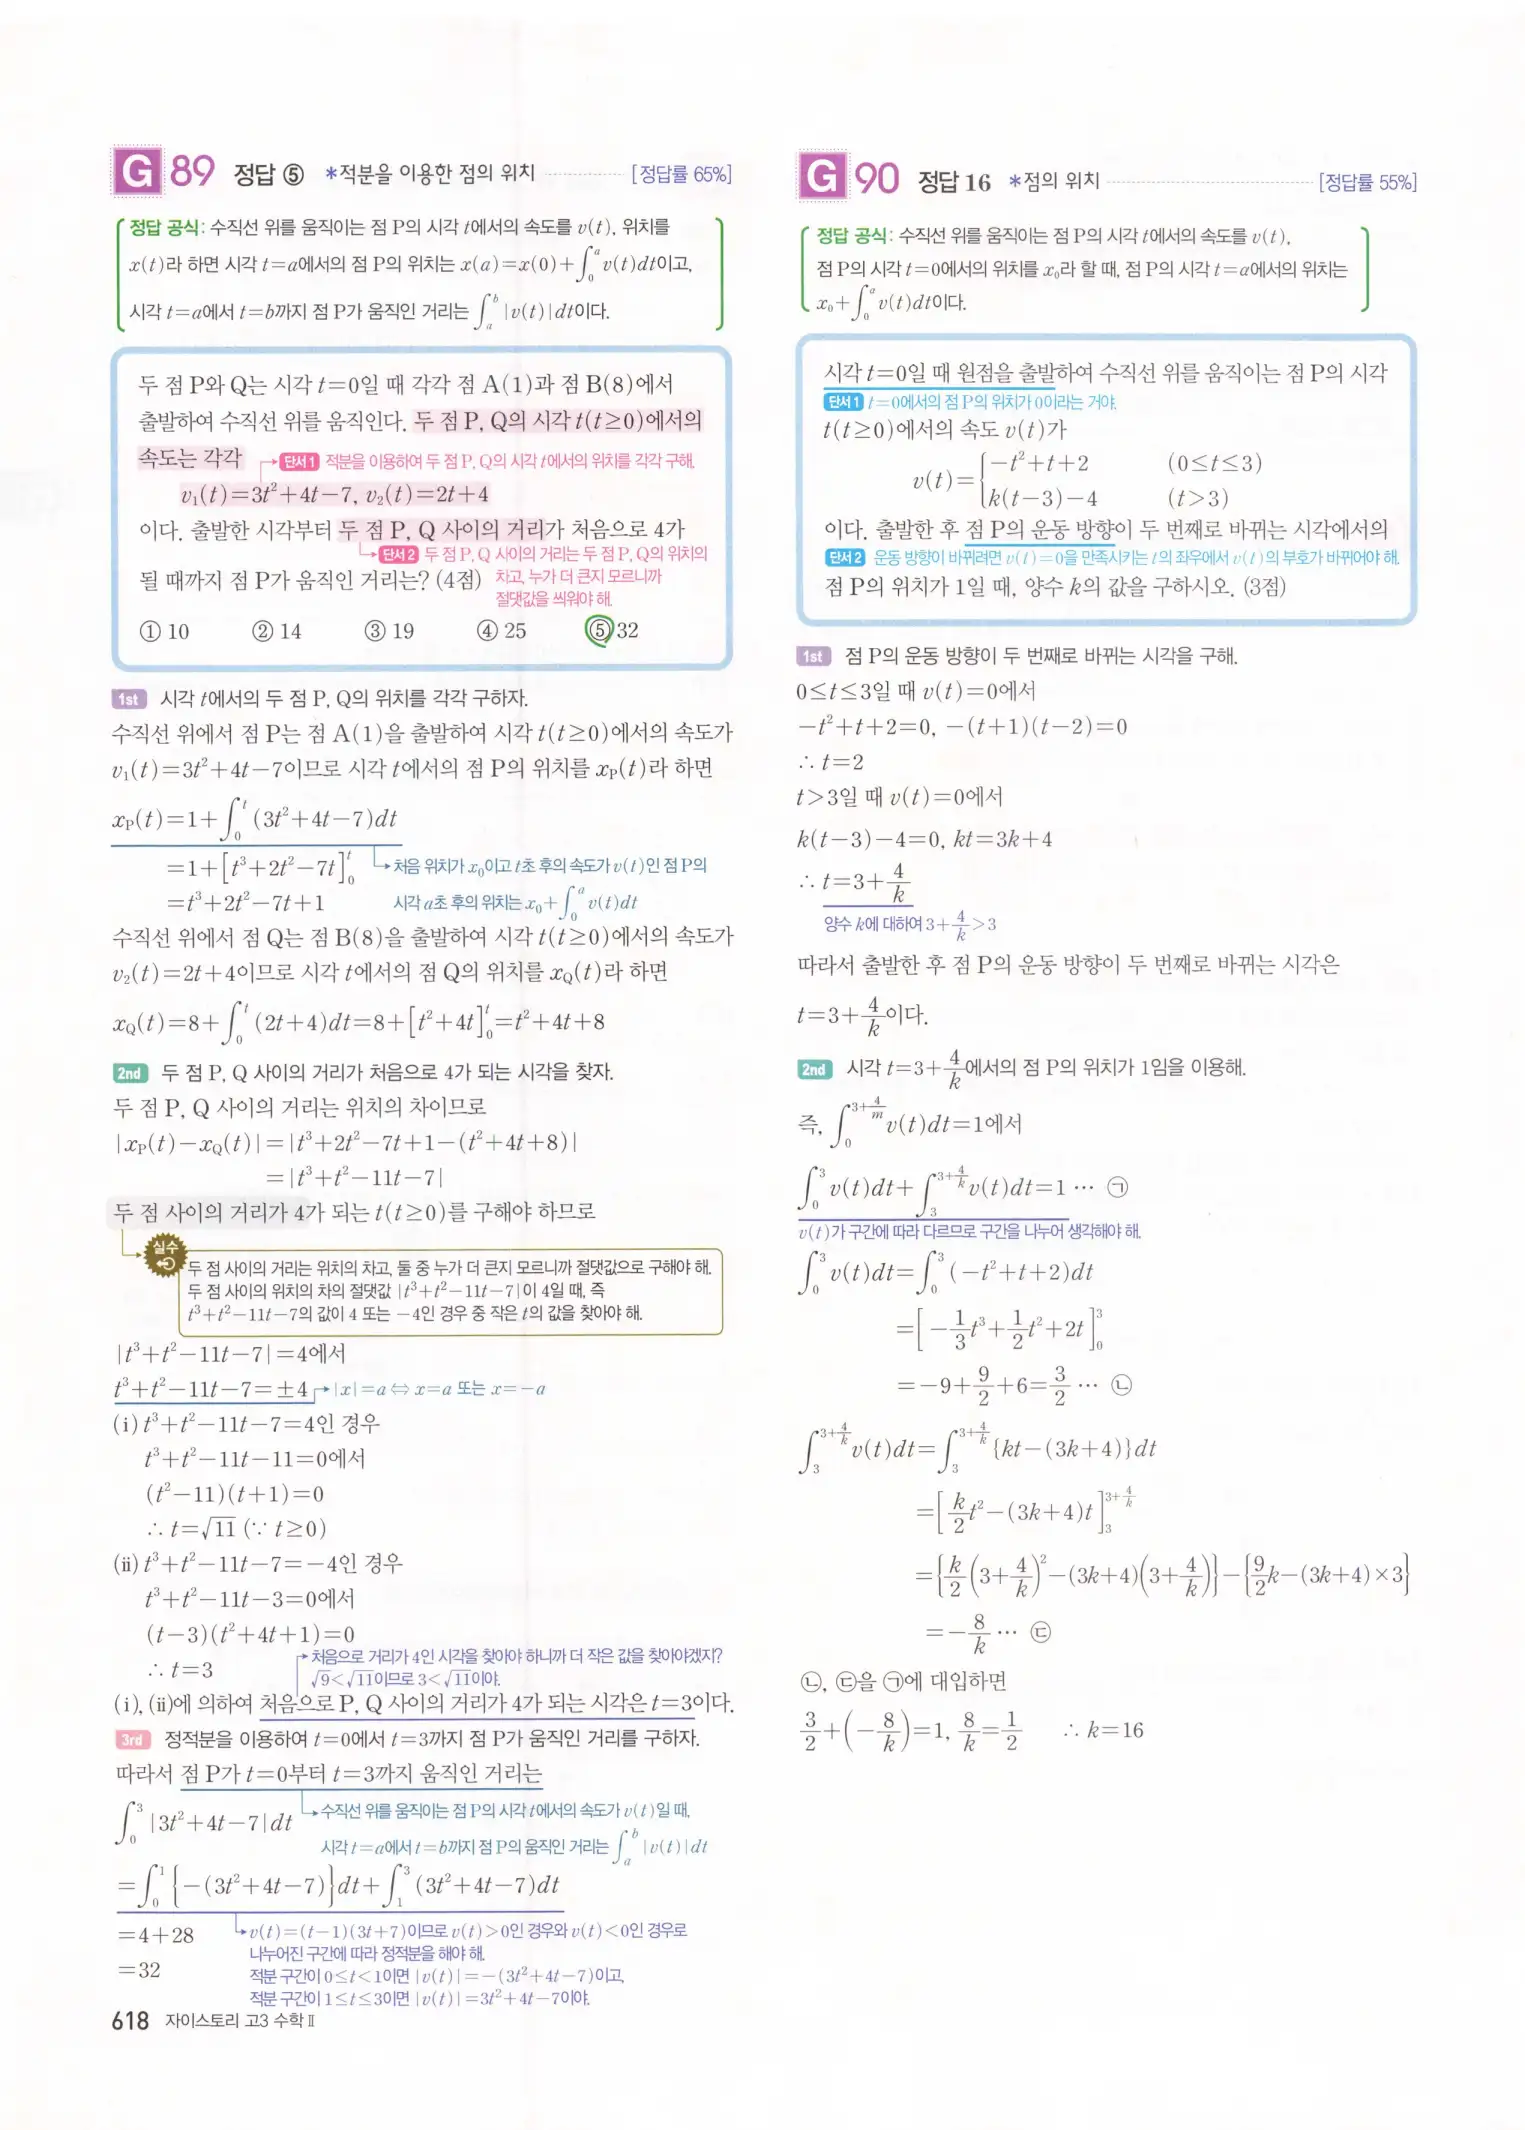 G 89 정답 ⑤ *적분을 이용한 점의 위치 [정답률 65%]
정답 공식: 수직선 위를 움직이는 점 P의 시각 t에서의 속도를 v(t), 위치를
x(t)라 하면 시각 t=a에서의 점 P의 위치는 x(a)=x(0)+∫₀ᵃ v(t)dt이고,
시각 t=a에서 t=b까지 점 P가 움직인 거리는 ∫ₐᵇ |v(t)|dt이다.
두 점 P와 Q는 시각 t=0일 때 각각 점 A(1)과 점 B(8)에서
출발하여 수직선 위를 움직인다. 두 점 P, Q의 시각 t(t≥0)에서의
속도는 각각 단서1 적분을 이용하여 두 점 P, Q의 시각 t에서의 위치를 각각 구해.
v₁(t)=3t²+4t−7, v₂(t)=2t+4
이다. 출발한 시각부터 두 점 P, Q 사이의 거리가 처음으로 4가
단서2 두 점 P, Q 사이의 거리는 두 점 P, Q의 위치의
될 때까지 점 P가 움직인 거리는? (4점) 차고, 누가 더 큰지 모르니까
절댓값을 씌워야 해.
① 10 ② 14 ③ 19 ④ 25 ⑤ 32
1st 시각 t에서의 두 점 P, Q의 위치를 각각 구하자.
수직선 위에서 점 P는 점 A(1)을 출발하여 시각 t(t≥0)에서의 속도가
v₁(t)=3t²+4t−7이므로 시각 t에서의 점 P의 위치를 x_P(t)라 하면
x_P(t)=1+∫₀ᵗ (3t²+4t−7)dt
=1+[t³+2t²−7t]₀ᵗ 처음 위치가 x₀이고 t초 후의 속도가 v(t)인 점 P의
=t³+2t²−7t+1 시각 a초 후의 위치는 x₀+∫₀ᵃ v(t)dt
수직선 위에서 점 Q는 점 B(8)을 출발하여 시각 t(t≥0)에서의 속도가
v₂(t)=2t+4이므로 시각 t에서의 점 Q의 위치를 x_Q(t)라 하면
x_Q(t)=8+∫₀ᵗ (2t+4)dt=8+[t²+4t]₀ᵗ=t²+4t+8
2nd 두 점 P, Q 사이의 거리가 처음으로 4가 되는 시각을 찾자.
두 점 P, Q 사이의 거리는 위치의 차이므로
|x_P(t)−x_Q(t)|=|t³+2t²−7t+1−(t²+4t+8)|
=|t³+t²−11t−7|
두 점 사이의 거리가 4가 되는 t(t≥0)를 구해야 하므로
실수
두 점 사이의 거리는 위치의 차고, 둘 중 누가 더 큰지 모르니까 절댓값으로 구해야 해.
두 점 사이의 위치의 차의 절댓값 |t³+t²−11t−7|이 4일 때, 즉
t³+t²−11t−7의 값이 4 또는 −4인 경우 중 작은 t의 값을 찾아야 해.
|t³+t²−11t−7|=4에서
t³+t²−11t−7=±4 |x|=a⇔x=a 또는 x=−a
(ⅰ) t³+t²−11t−7=4인 경우
t³+t²−11t−11=0에서
(t²−11)(t+1)=0
∴ t=√11 (∵ t≥0)
(ⅱ) t³+t²−11t−7=−4인 경우
t³+t²−11t−3=0에서
(t−3)(t²+4t+1)=0
처음으로 거리가 4인 시각을 찾아야 하니까 더 작은 값을 찾아야겠지?
∴ t=3 √9<√11이므로 3<√11이야.
(ⅰ), (ⅱ)에 의하여 처음으로 P, Q 사이의 거리가 4가 되는 시각은 t=3이다.
3rd 정적분을 이용하여 t=0에서 t=3까지 점 P가 움직인 거리를 구하자.
따라서 점 P가 t=0부터 t=3까지 움직인 거리는
∫₀³ |3t²+4t−7|dt 수직선 위를 움직이는 점 P의 시각 t에서의 속도가 v(t)일 때,
시각 t=a에서 t=b까지 점 P의 움직인 거리는 ∫ₐᵇ |v(t)|dt
=∫₀¹ {−(3t²+4t−7)}dt+∫₁³ (3t²+4t−7)dt
=4+28 v(t)=(t−1)(3t+7)이므로 v(t)>0인 경우와 v(t)<0인 경우로
나누어진 구간에 따라 정적분을 해야 해.
=32 적분 구간이 0≤t<1이면 |v(t)|=−(3t²+4t−7)이고,
적분 구간이 1≤t≤3이면 |v(t)|=3t²+4t−7이야.
618 자이스토리 고3 수학Ⅱ
G 90 정답 16 *점의 위치 [정답률 55%]
정답 공식: 수직선 위를 움직이는 점 P의 시각 t에서의 속도를 v(t),
점 P의 시각 t=0에서의 위치를 x₀라 할 때, 점 P의 시각 t=a에서의 위치는
x₀+∫₀ᵃ v(t)dt이다.
시각 t=0일 때 원점을 출발하여 수직선 위를 움직이는 점 P의 시각
단서1 t=0에서의 점 P의 위치가 0이라는 거야.
t(t≥0)에서의 속도 v(t)가
v(t)={−t²+t+2 (0≤t≤3)
k(t−3)−4 (t>3)
이다. 출발한 후 점 P의 운동 방향이 두 번째로 바뀌는 시각에서의
단서2 운동 방향이 바뀌려면 v(t)=0을 만족시키는 t의 좌우에서 v(t)의 부호가 바뀌어야 해.
점 P의 위치가 1일 때, 양수 k의 값을 구하시오. (3점)
1st 점 P의 운동 방향이 두 번째로 바뀌는 시각을 구해.
0≤t≤3일 때 v(t)=0에서
−t²+t+2=0, −(t+1)(t−2)=0
∴ t=2
t>3일 때 v(t)=0에서
k(t−3)−4=0, kt=3k+4
∴ t=3+4/k
양수 k에 대하여 3+4/k>3
따라서 출발한 후 점 P의 운동 방향이 두 번째로 바뀌는 시각은
t=3+4/k이다.
2nd 시각 t=3+4/k에서의 점 P의 위치가 1임을 이용해.
즉, ∫₀^(3+4/m) v(t)dt=1에서
∫₀³ v(t)dt+∫₃^(3+4/k) v(t)dt=1 … ㉠
v(t)가 구간에 따라 다르므로 구간을 나누어 생각해야 해.
∫₀³ v(t)dt=∫₀³ (−t²+t+2)dt
=[−1/3t³+1/2t²+2t]₀³
=−9+9/2+6=3/2 … ㉡
∫₃^(3+4/k) v(t)dt=∫₃^(3+4/k) {kt−(3k+4)}dt
=[k/2t²−(3k+4)t]₃^(3+4/k)
={k/2(3+4/k)²−(3k+4)(3+4/k)}−{9/2k−(3k+4)×3}
=−8/k … ㉢
㉡, ㉢을 ㉠에 대입하면
3/2+(−8/k)=1, 8/k=1/2 ∴ k=16